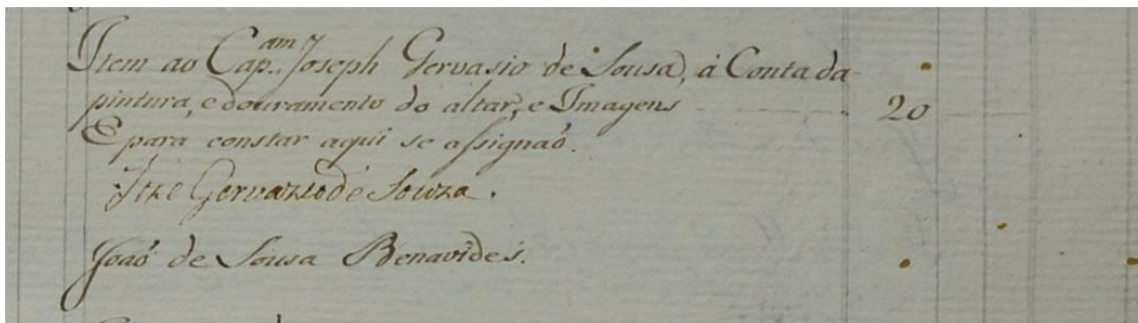 Item ao Cap.am Joseph Gervasio de Sousa, á Conta da
pintura, e douramento do altar, e Imagens 20
E para constar aqui se assignaõ.
Gervazio de Souza.
Joaõ de Sousa Benavides.